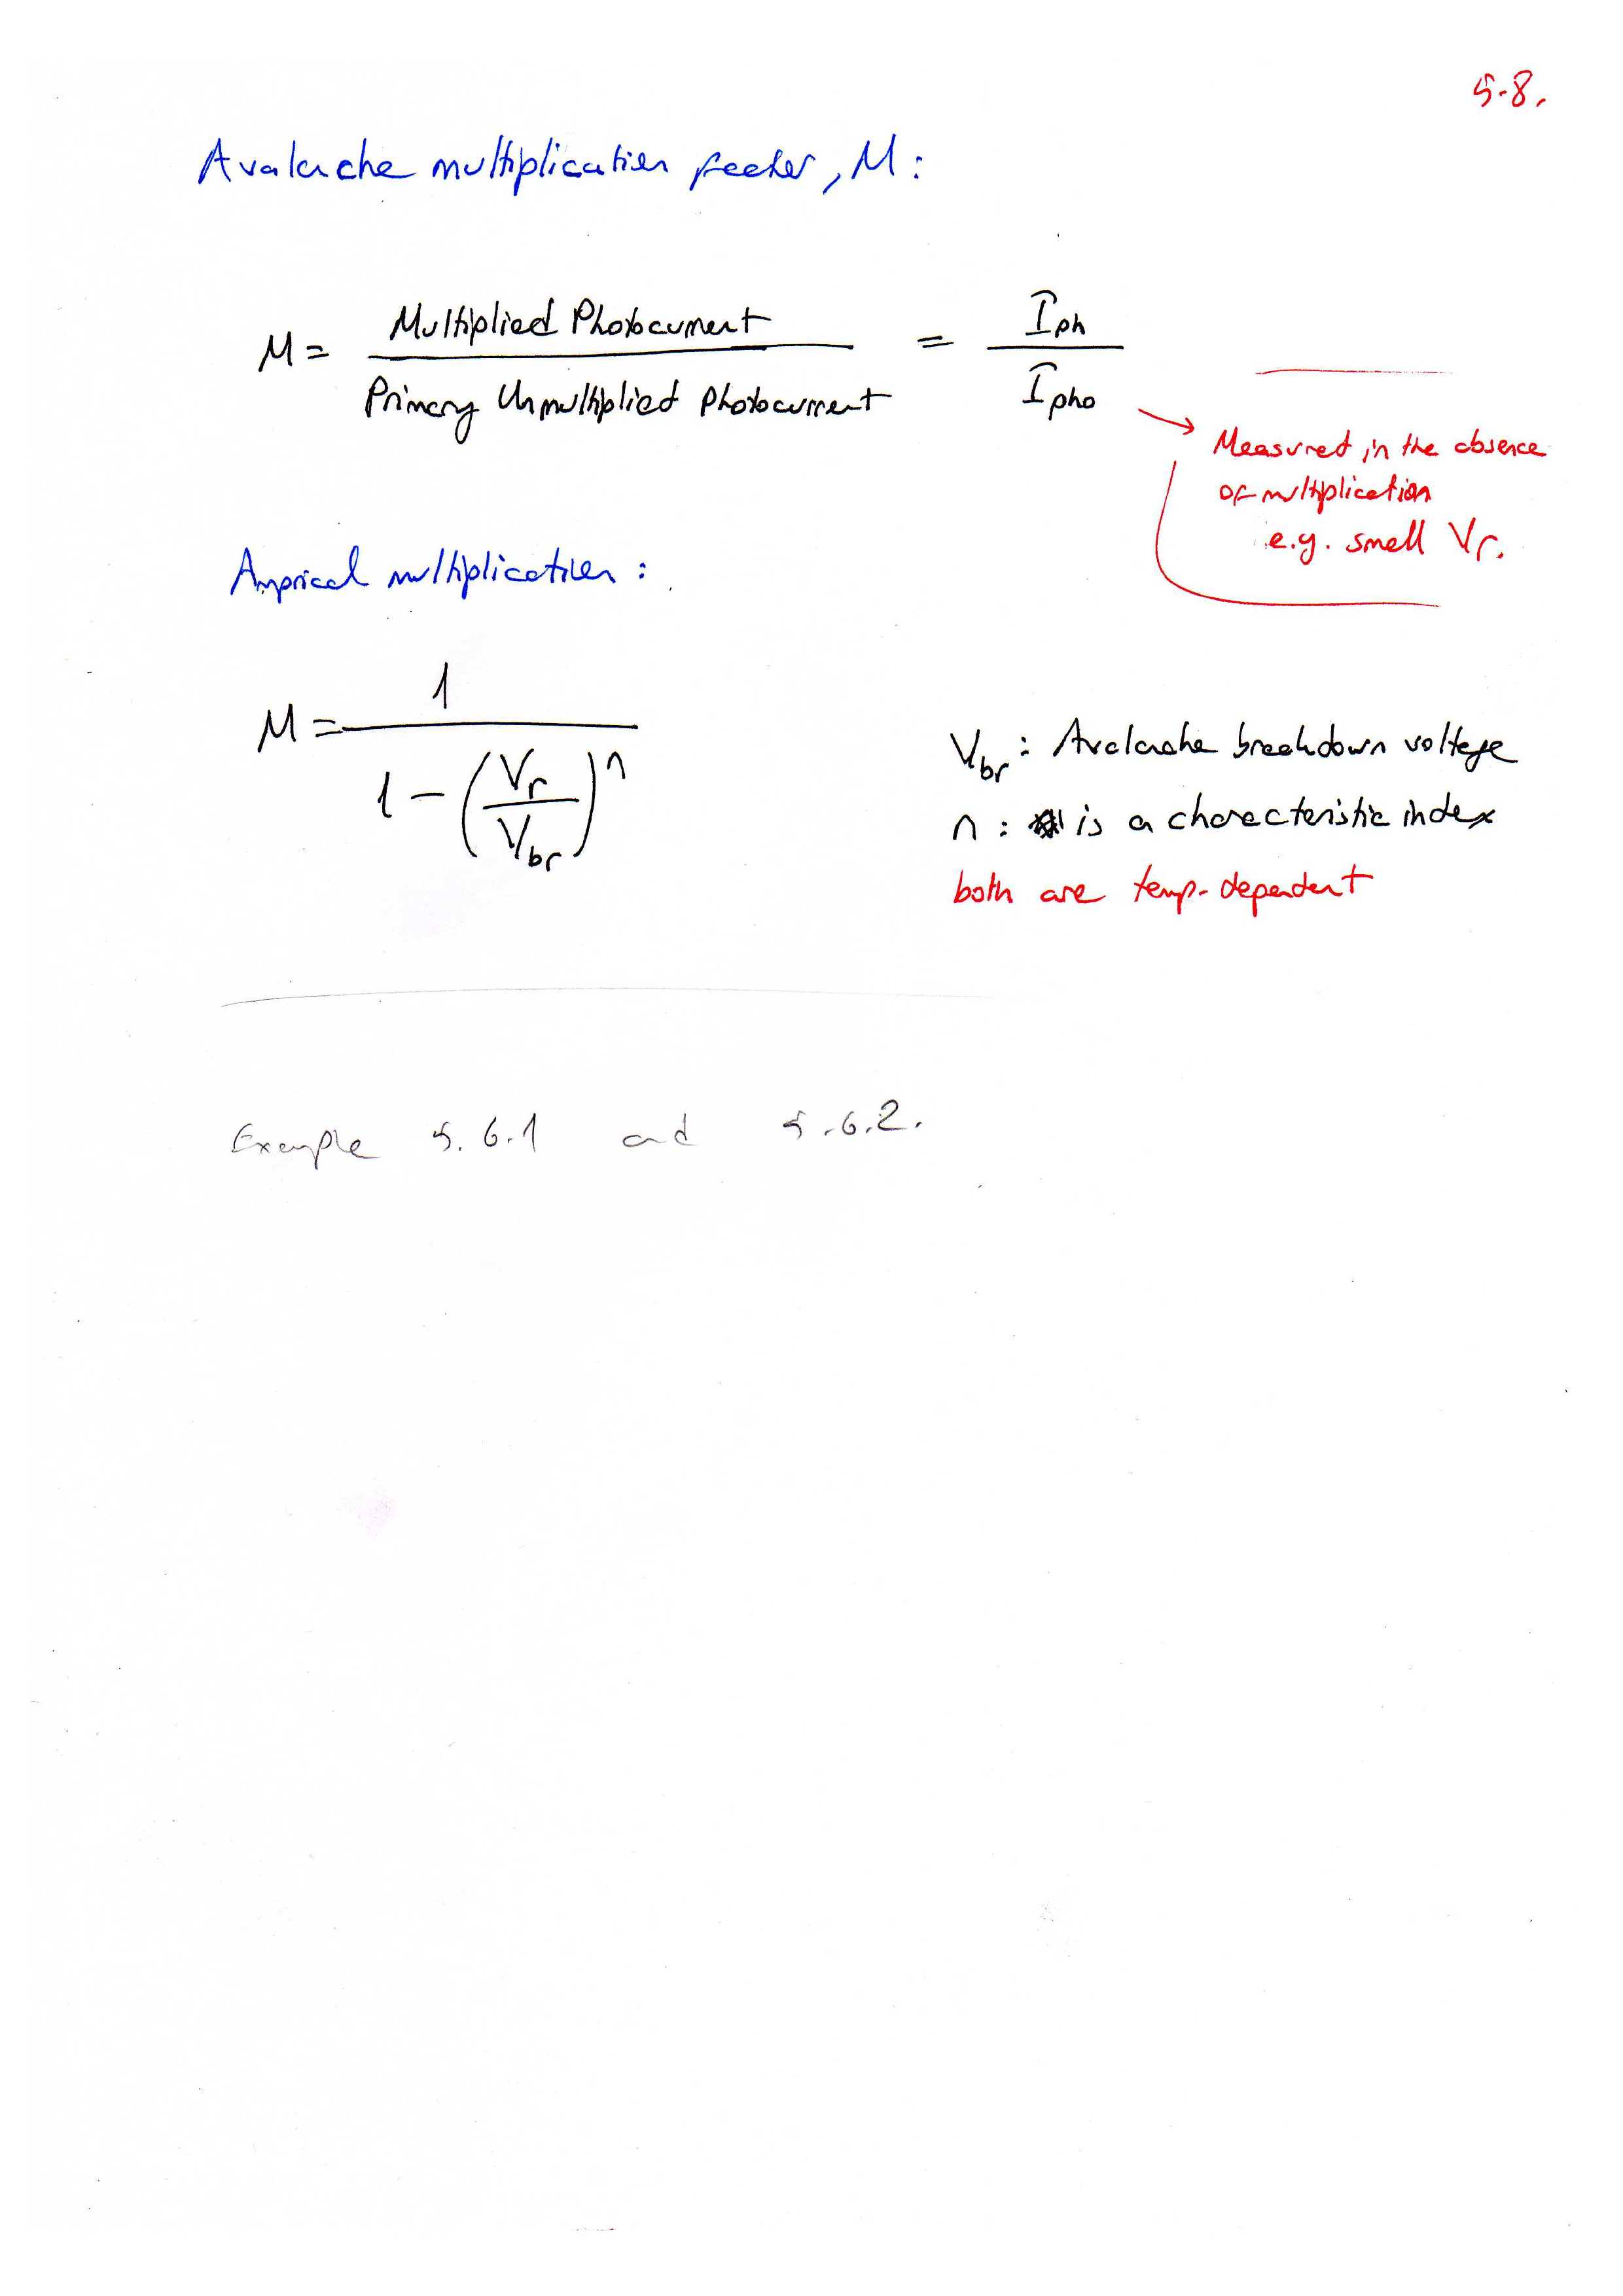 5-8.
Avalache multiplication factor, M:
M = Multiplied Photocurrent / Primary Unmultiplied Photocurrent = Iph / Ipho
Measured in the absence
of multiplication
e.g. small Vr.
Amprical multiplication:
M = 1 / 1 - (Vr / Vbr)^n
Vbr: Avalache breakdown voltage
n: is a characteristic index
both are temp-dependent
Example 5.6.1 and 5.6.2.